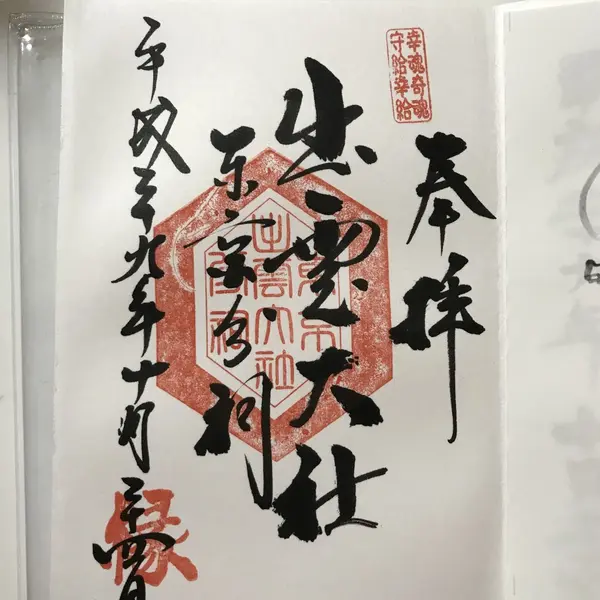 幸魂奇魂
守給幸給
奉拝
出雲大社
東京分祠
東京
出雲大社
分祠
平成二十九年十月二十四日
縁